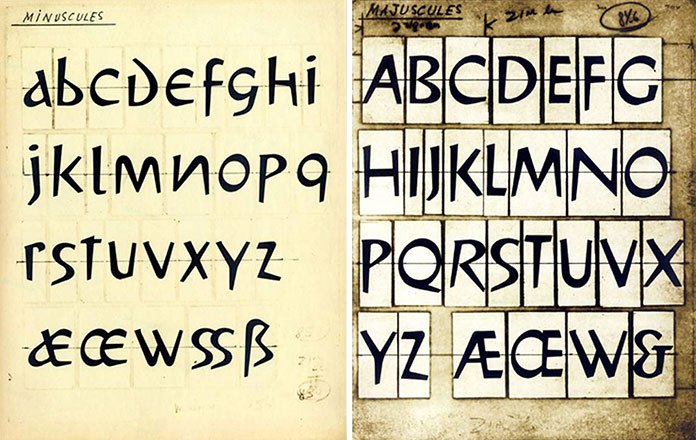 MINUSCULES
abcdefghi
jklmnopq
rstuvxyz
æœwssß
MAJUSCULES
ABCDEFG
HIJKLMNO
PQRSTUVX
YZ ÆŒW&